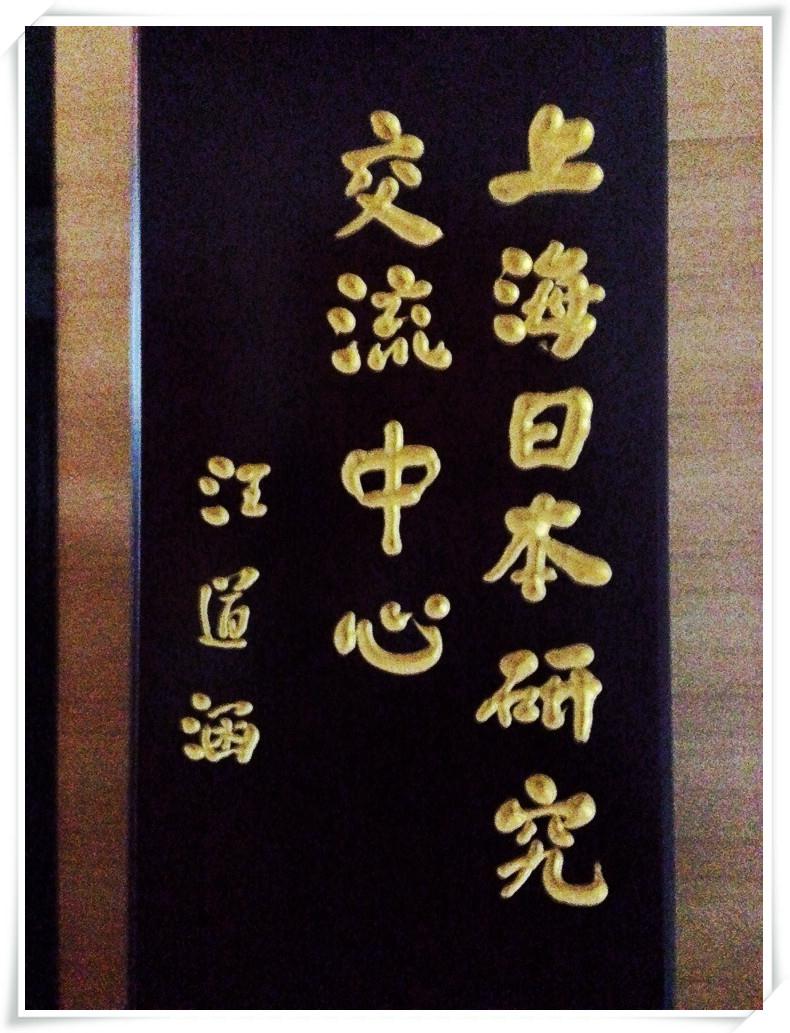 上海日本研究
交流中心
汪道涵